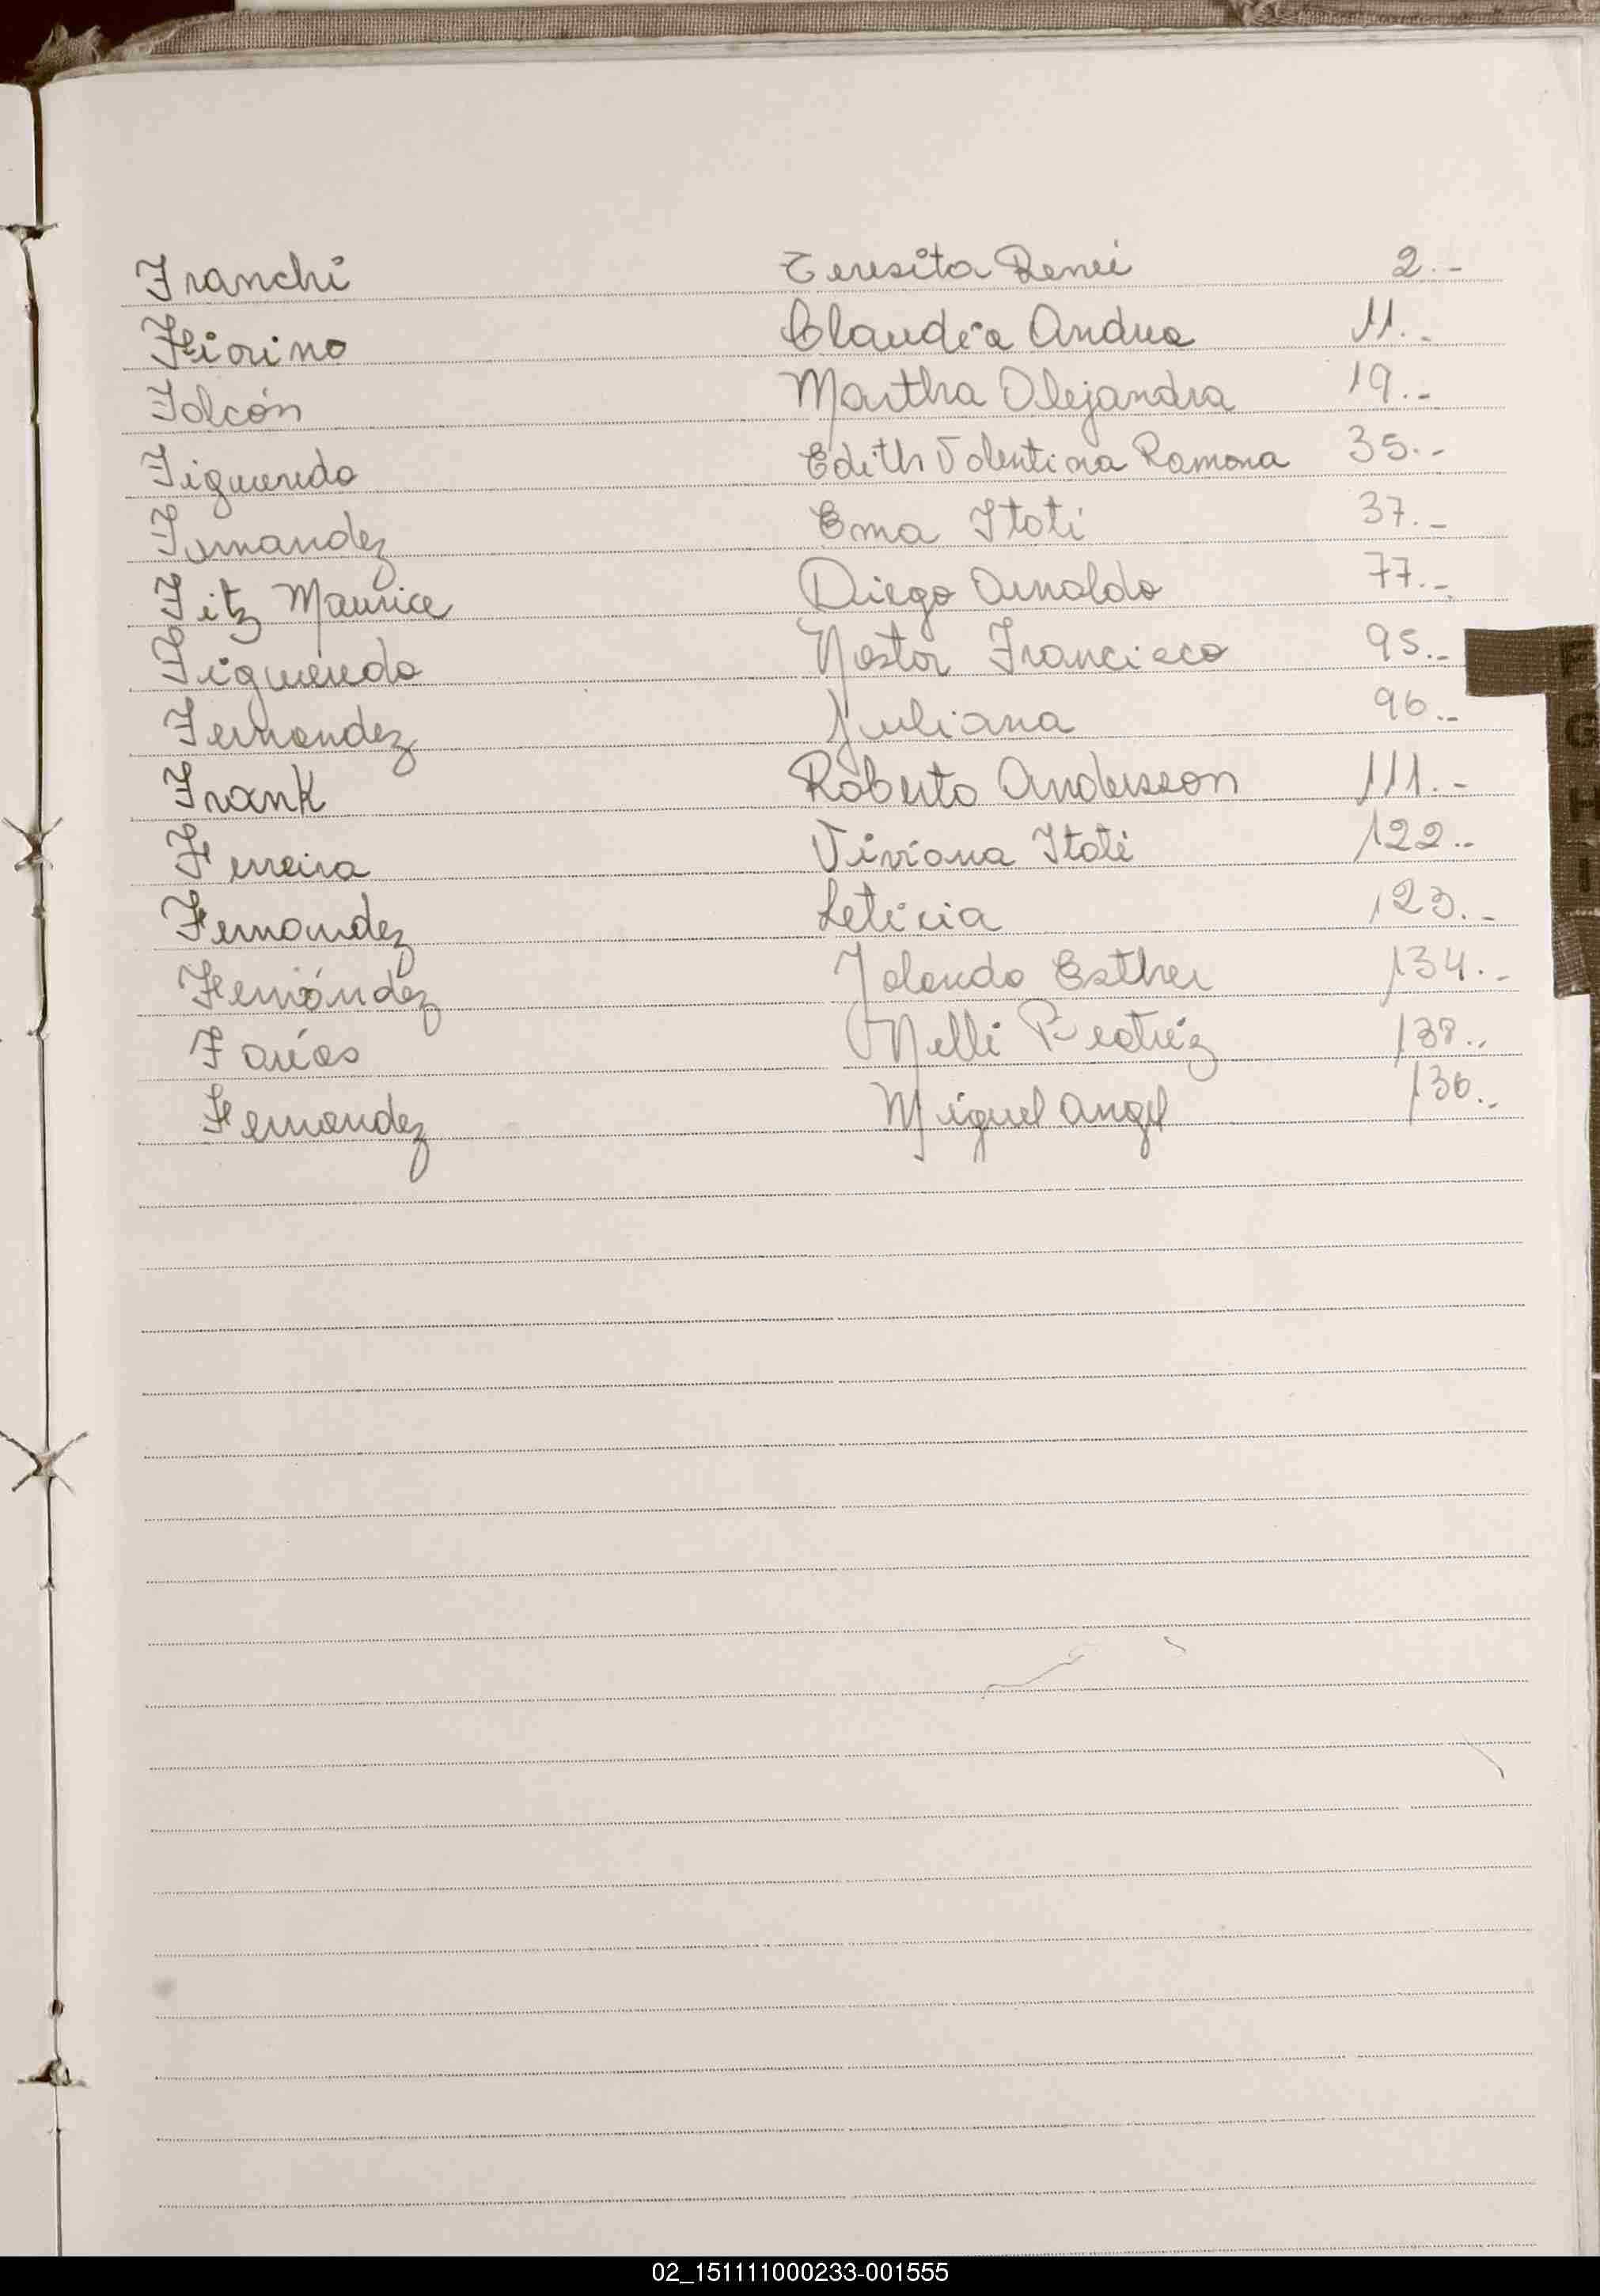 Franchi Teresita Reneé 2.-
Fiorino Claudia Andrea 11.-
Falcón Martha Alejandra 19.-
Figueredo Edith Valentina Ramona 35.-
Fernandez Ema Itatí 37.-
Fitz Maurice Diego Arnaldo 77.-
Figueredo Nestor Francisco 95.-
Fernandez Juliana 96.-
Frank Roberto Andersson 111.-
Ferreira Viviana Itatí 122.-
Fernandez Leticia 123.-
Fernández Yolanda Esther 134.-
Farías Nelli Beatriz 138.-
Fernandez Miguel Angel 136.-
F
G
H
I
02_151111000233-001555